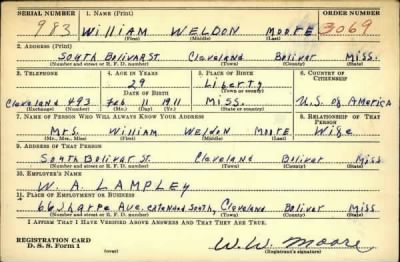 SERIAL NUMBER 1. NAME (Print) ORDER NUMBER
983 William Weldon Moore 3069
(First) (Middle) (Last)
2. ADDRESS (Print)
South Bolivar St. Cleveland Bolivar Miss.
(Number and street or R. F. D. number) (Town) (County) (State)
3. TELEPHONE 4. AGE IN YEARS 5. PLACE OF BIRTH 6. COUNTRY OF CITIZENSHIP
29 Liberty
DATE OF BIRTH (Town or county)
Cleveland 493 Feb 11 1911 Miss. U.S. of America
(Exchange) (Number) (Mo.) (Day) (Yr.) (State or country)
7. NAME OF PERSON WHO WILL ALWAYS KNOW YOUR ADDRESS 8. RELATIONSHIP OF THAT PERSON
Mrs. William Weldon Moore Wife
(Mr., Mrs., Miss) (First) (Middle) (Last)
9. ADDRESS OF THAT PERSON
South Bolivar St. Cleveland Bolivar Miss
(Number and street or R. F. D. number) (Town) (County) (State)
10. EMPLOYER'S NAME
W. A. LAMPLEY
11. PLACE OF EMPLOYMENT OR BUSINESS
Sharpe Ave. South, Cleveland Bolivar Miss
(Number and street or R. F. D. number) (Town) (County) (State)
I AFFIRM THAT I HAVE VERIFIED ABOVE ANSWERS AND THAT THEY ARE TRUE.
REGISTRATION CARD
D. S. S. Form 1 (over) W. W. Moore
(Registrant's signature)